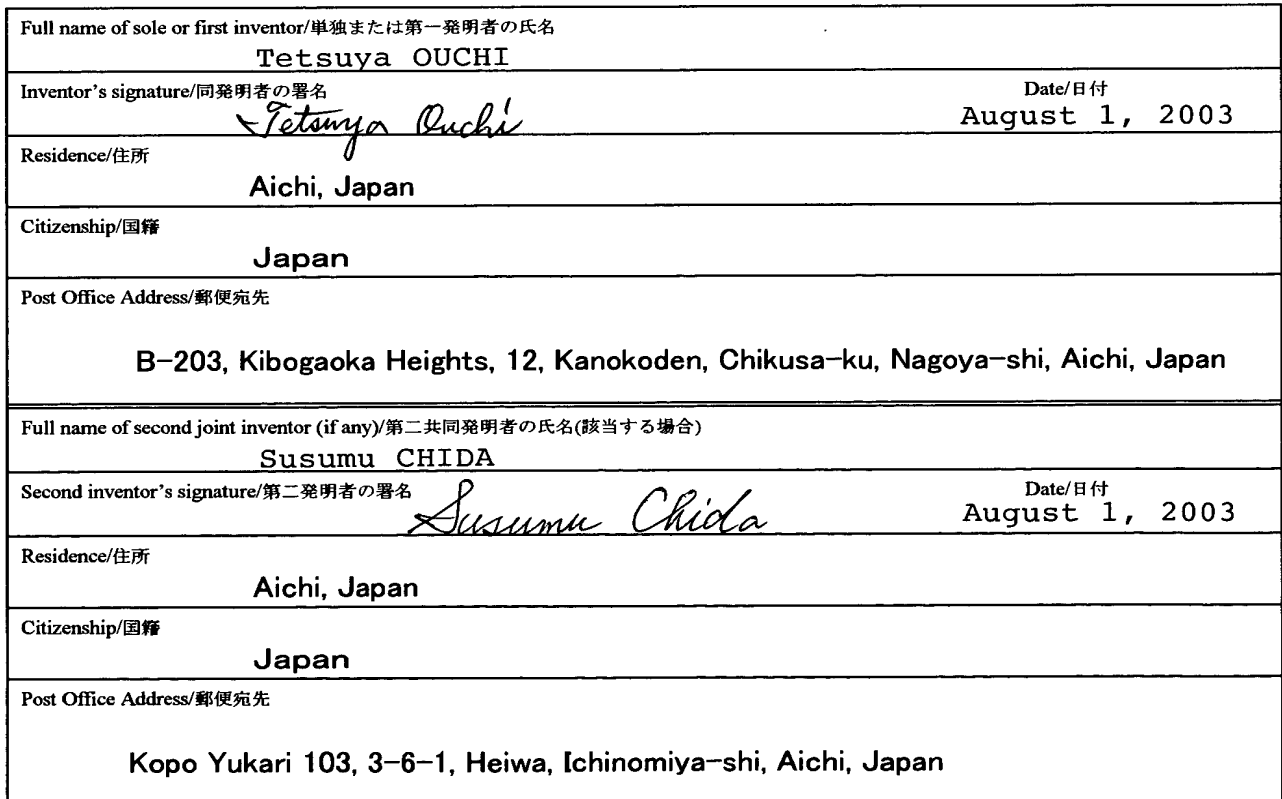 Full name of sole or first inventor/単独または第一発明者の氏名
Tetsuya OUCHI
Inventor's signature/同発明者の署名
Tetsuya Ouchi
Date/日付
August 1, 2003
Residence/住所
Aichi, Japan
Citizenship/国籍
Japan
Post Office Address/郵便宛先
B-203, Kibogaoka Heights, 12, Kanokoden, Chikusa-ku, Nagoya-shi, Aichi, Japan
Full name of second joint inventor (if any)/第二共同発明者の氏名(該当する場合)
Susumu CHIDA
Second inventor's signature/第二発明者の署名
Susumu Chida
Date/日付
August 1, 2003
Residence/住所
Aichi, Japan
Citizenship/国籍
Japan
Post Office Address/郵便宛先
Kopo Yukari 103, 3-6-1, Heiwa, Ichinomiya-shi, Aichi, Japan